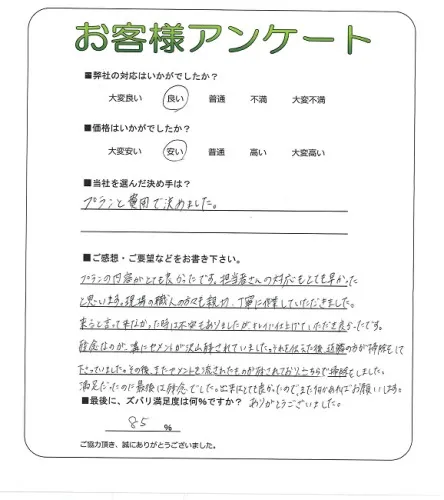 お客様アンケート
■弊社の対応はいかがでしたか？
大変良い 良い 普通 不満 大変不満
■価格はいかがでしたか？
大変安い 安い 普通 高い 大変高い
■当社を選んだ決め手は？
プランと費用で決めました。
■ご感想・ご要望などをお書き下さい。
プランの内容がとても良かったです。担当者さんの対応もとても早かった
と思います。現場の職人の方々も親切、丁寧に作業していただきました。
来ると言って来なかった時は不安もありましたが、キレイに仕上げていただき良かったです。
残念なのが、溝にセメントが沢山 されていました。それを伝えた後、 の方が掃除をして
下さっていました。その後、またセメントを流されたものが されており、こちらで掃除をしました。
満足だったのに最後は残念でした。出来はとても良かったので、また何かあればお願いします。
ありがとうございました。
■最後に、ズバリ満足度は何%ですか？
85 %
ご協力頂き、誠にありがとうございました。